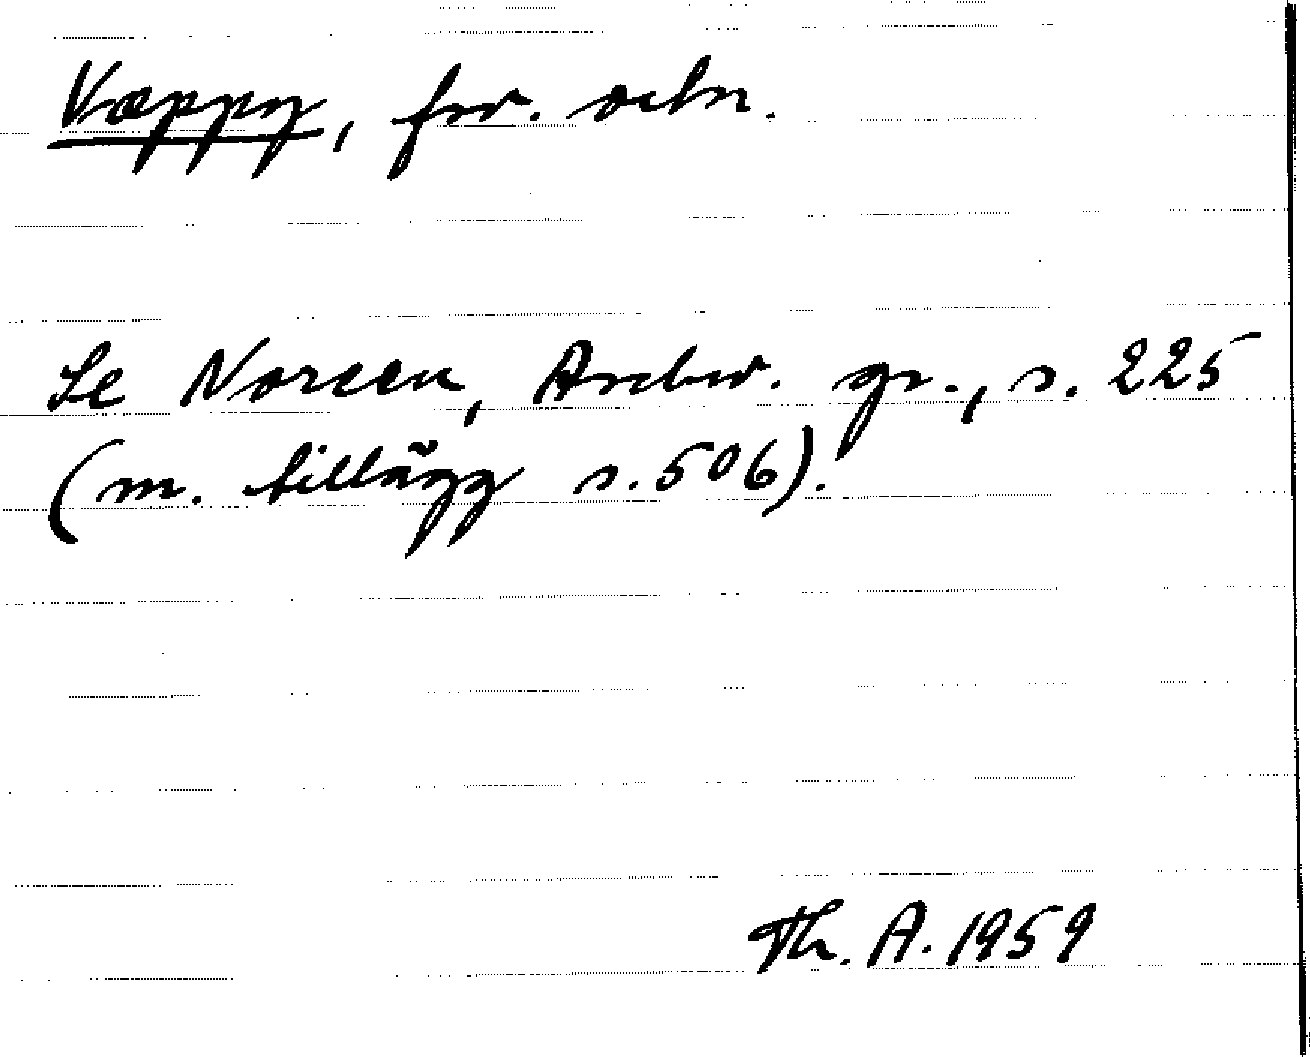 Væppy, fsv. ortn.
Se Noreen, Aschw. gr., s. 225
(m. tillägg s. 506).
Th. A. 1959